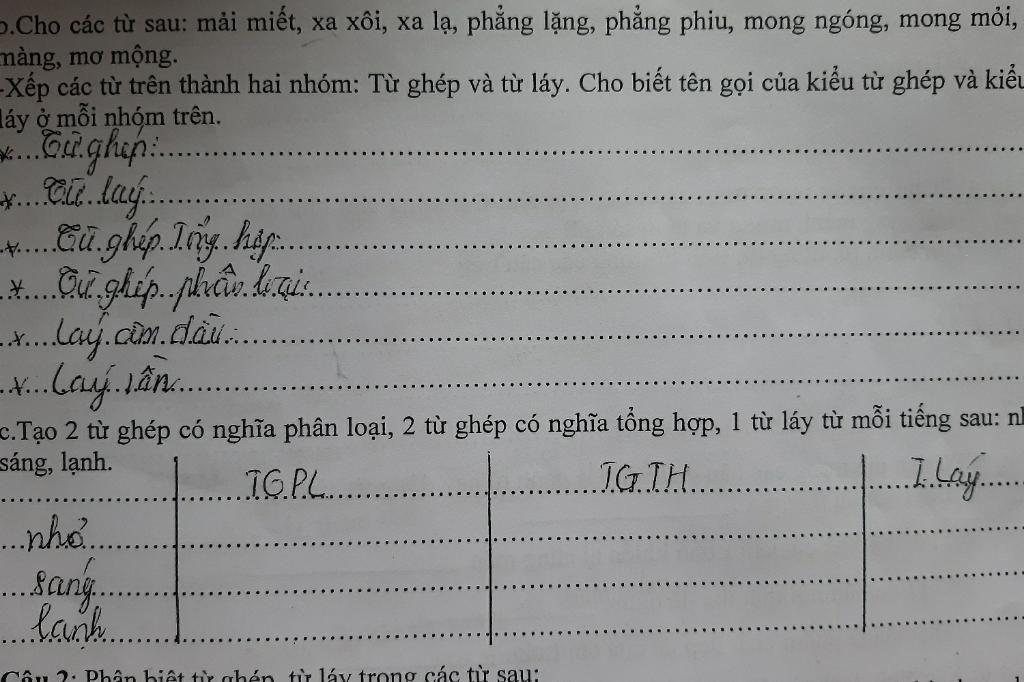 b.Cho các từ sau: mải miết, xa xôi, xa lạ, phẳng lặng, phẳng phiu, mong ngóng, mong mỏi,
màng, mơ mộng.
-Xếp các từ trên thành hai nhóm: Từ ghép và từ láy. Cho biết tên gọi của kiểu từ ghép và kiểu
láy ở mỗi nhóm trên.
*....Từ ghép:
*....Từ láy:
*....Từ ghép Tổng hợp:
*....Từ ghép phân loại:
*....Láy âm đầu:
*....Láy vần
c.Tạo 2 từ ghép có nghĩa phân loại, 2 từ ghép có nghĩa tổng hợp, 1 từ láy từ mỗi tiếng sau:
sáng, lạnh.
TGPL TGTH T.Láy
nhỏ
sáng
lạnh
Câu 2: Phân biệt từ ghép, từ láy trong các từ sau: